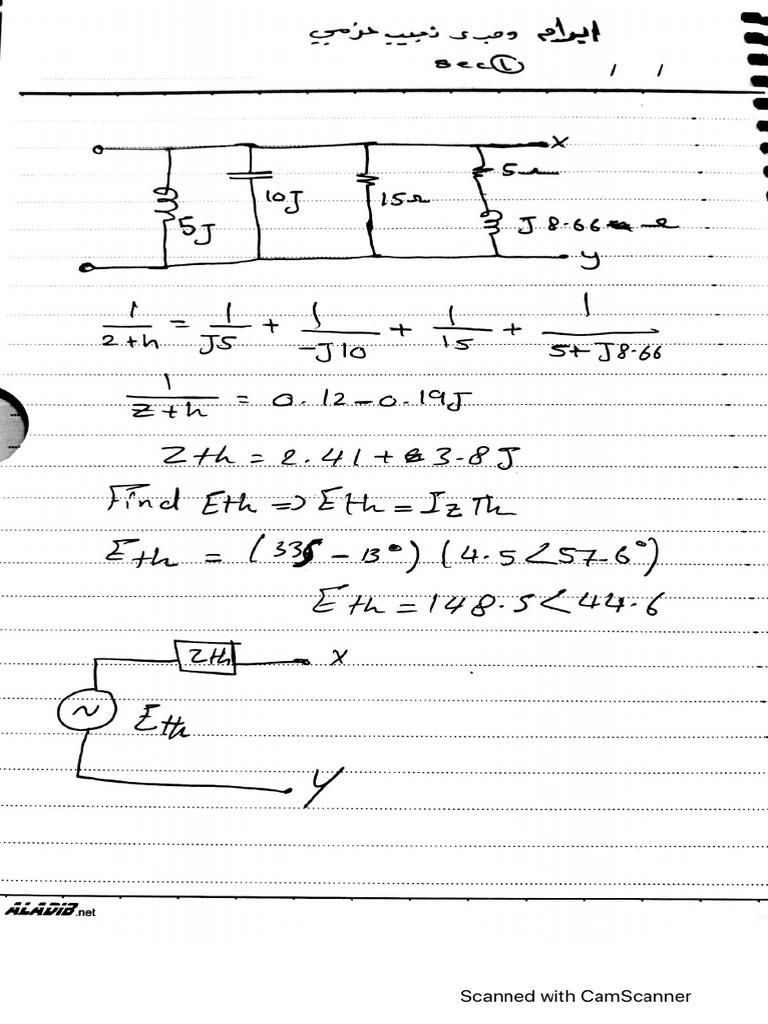 ايرام وجدى نجيب عزمي
sec ①
/ /
x
5Ω
5J
10J
15Ω
J 8.66 Ω
y
1/Zth = 1/J5 + 1/-J10 + 1/15 + 1/5+J8.66
1/Zth = 0.12-0.19J
Zth = 2.41+3.8J
Find Eth => Eth = I Z Th
Eth = (33 - 13°) (4.5<57.6°)
Eth = 148.5<44.6
Zth x
~ Eth
y
ALADIB.net
Scanned with CamScanner